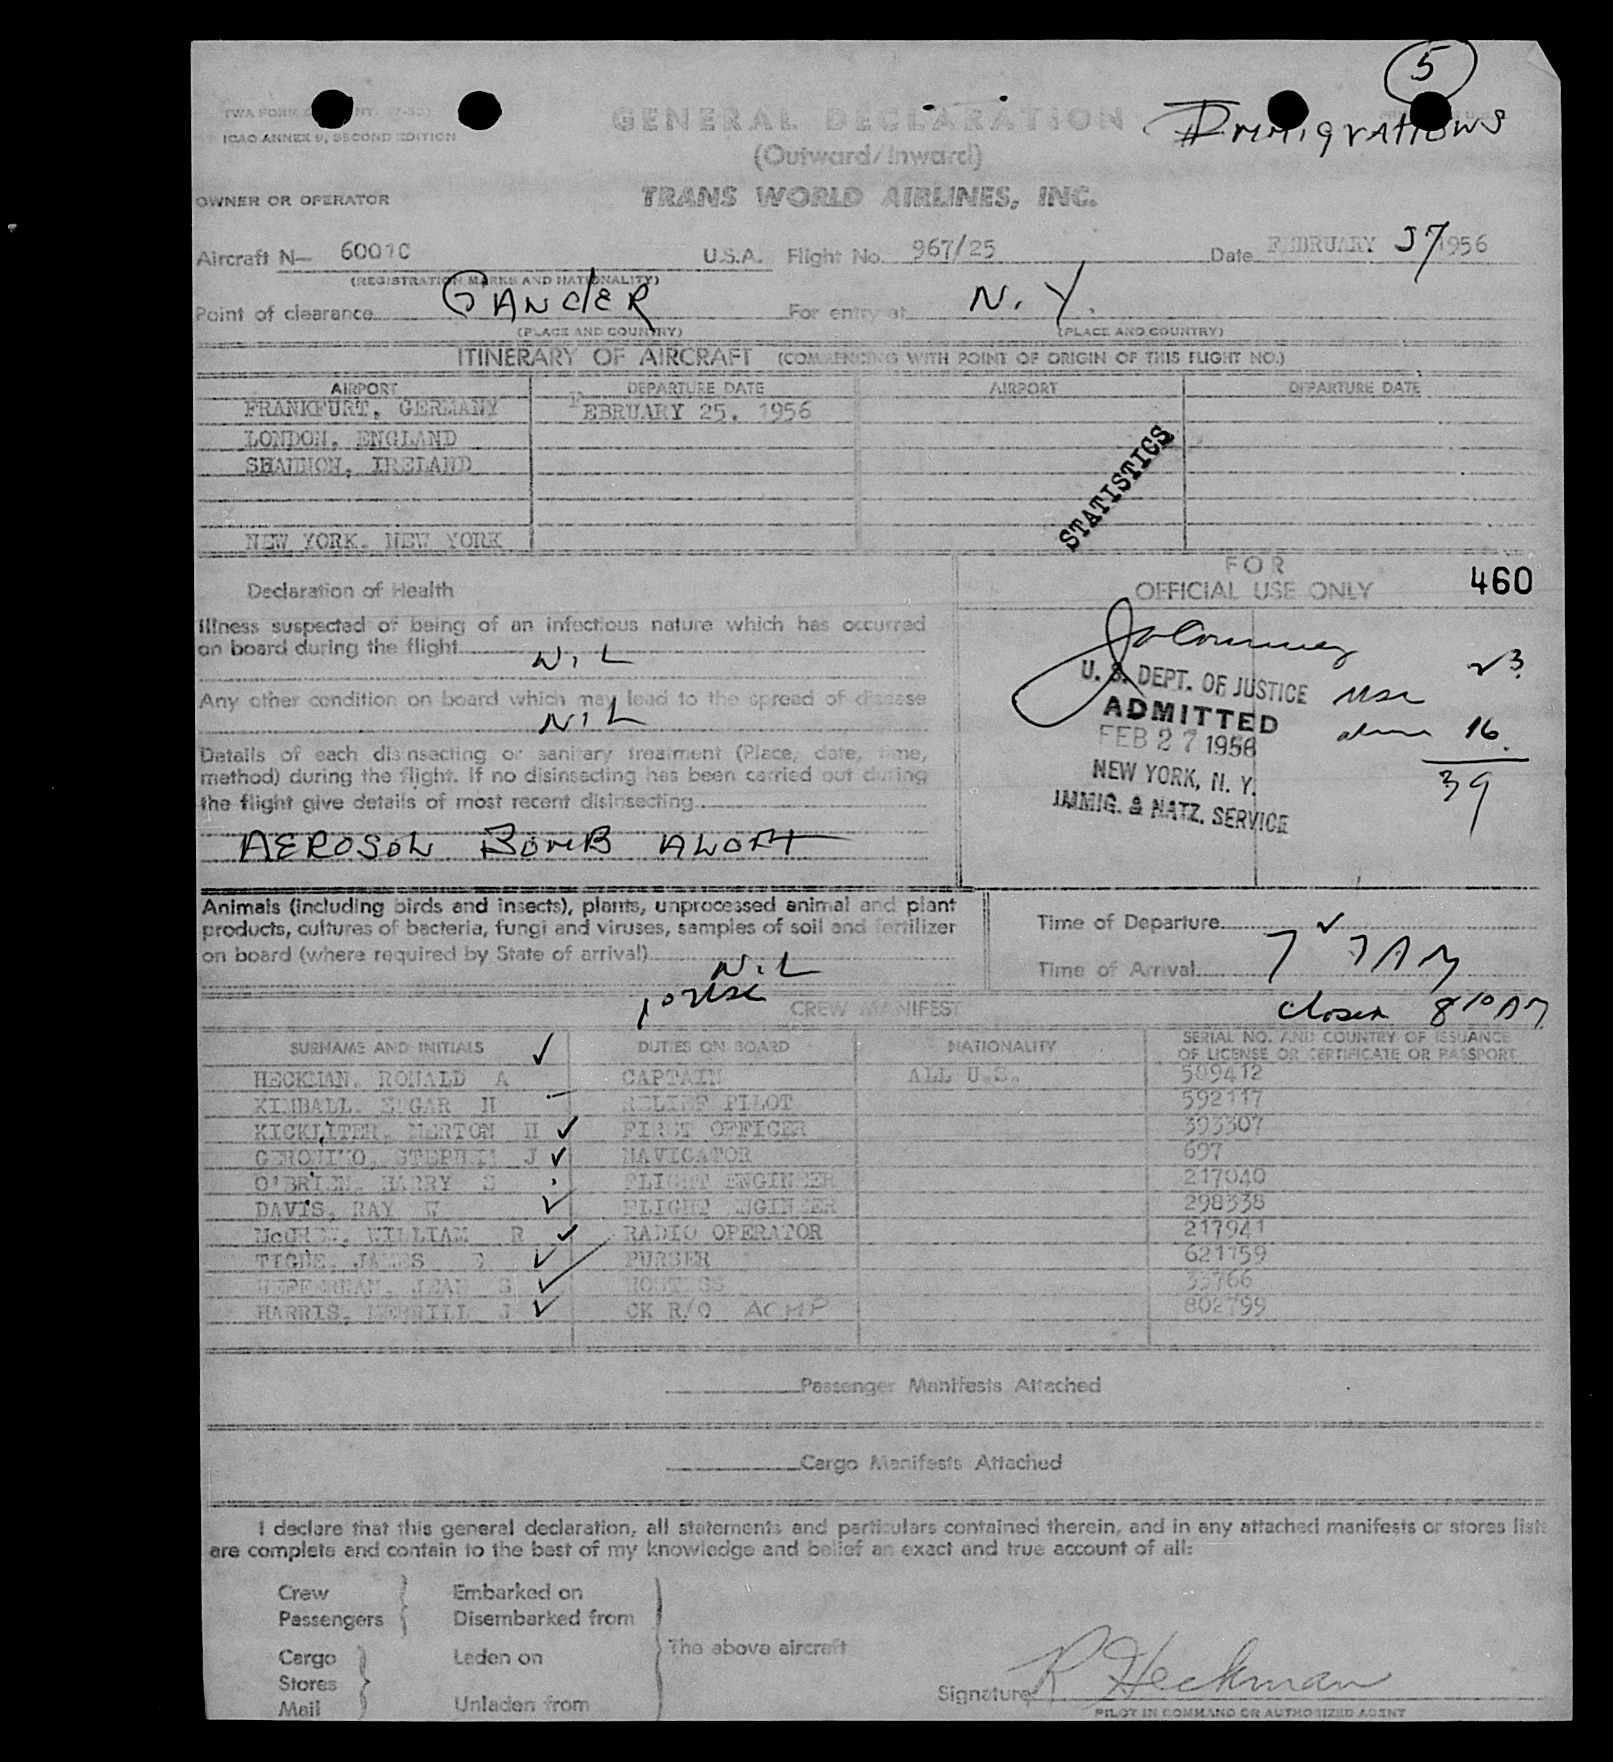 5
Immigrations
ICAO ANNEX 9, SECOND EDITION
GENERAL DECLARATION
(Outward/Inward)
OWNER OR OPERATOR
TRANS WORLD AIRLINES, INC.
Aircraft N— 6001C U.S.A. Flight No. 967/25 Date FEBRUARY 27 1956
(REGISTRATION MARKS AND NATIONALITY)
Point of clearance GANdER For entry at N.Y.
(PLACE AND COUNTRY) (PLACE AND COUNTRY)
ITINERARY OF AIRCRAFT (COMMENCING WITH POINT OF ORIGIN OF THIS FLIGHT NO.)
AIRPORT DEPARTURE DATE AIRPORT DEPARTURE DATE
FRANKFURT, GERMANY FEBRUARY 25, 1956
LONDON, ENGLAND
SHANNON, IRELAND
STATISTICS
NEW YORK, NEW YORK
FOR
OFFICIAL USE ONLY
460
Declaration of Health
Illness suspected of being of an infectious nature which has occurred
on board during the flight NiL
Any other condition on board which may lead to the spread of disease
NiL
Details of each disinsecting or sanitary treatment (Place, date, time,
method) during the flight. If no disinsecting has been carried out during
the flight give details of most recent disinsecting
AEROSOL BOMB ALOFT
U. S. DEPT. OF JUSTICE
ADMITTED
FEB 27 1956
NEW YORK, N. Y.
IMMIG. & NATZ. SERVICE
usc 23
alien 16
39
Animals (including birds and insects), plants, unprocessed animal and plant
products, cultures of bacteria, fungi and viruses, samples of soil and fertilizer
on board (where required by State of arrival) NiL
Time of Departure
Time of Arrival 7 7 AM
closed 8 10 AM
10 usc
CREW MANIFEST
SURNAME AND INITIALS DUTIES ON BOARD NATIONALITY SERIAL NO. AND COUNTRY OF ISSUANCE
OF LICENSE OR CERTIFICATE OR PASSPORT
HECKMAN, RONALD A CAPTAIN ALL U.S. 509412
KIMBALL, EDGAR H RELIEF PILOT 592117
KICKLITER, MERTON H FIRST OFFICER 393307
GERONIMO, STEPHEN J NAVIGATOR 697
O'BRIEN, HARRY S FLIGHT ENGINEER 217040
DAVIS, RAY W FLIGHT ENGINEER 298338
WILLIAM R RADIO OPERATOR 217941
TIGHE, JAMES E PURSER 621159
JEAN S HOSTESS 35766
HARRIS, MERRILL J CK R/O ACMP 802799
Passenger Manifests Attached
Cargo Manifests Attached
I declare that this general declaration, all statements and particulars contained therein, and in any attached manifests or stores lists
are complete and contain to the best of my knowledge and belief an exact and true account of all:
Crew Embarked on
Passengers Disembarked from
The above aircraft
Cargo Laden on
Stores
Mail Unladen from
Signature R Heckman
PILOT IN COMMAND OR AUTHORIZED AGENT